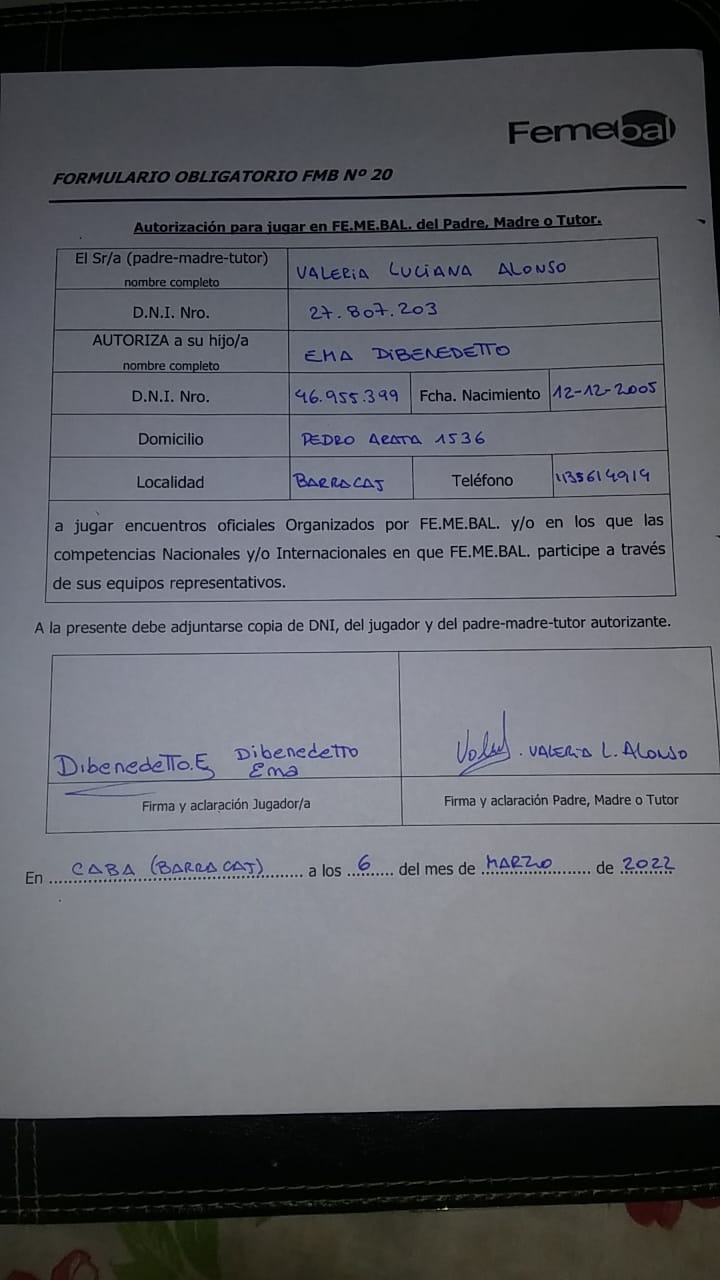 Femebal
FORMULARIO OBLIGATORIO FMB Nº 20
Autorización para jugar en FE.ME.BAL. del Padre, Madre o Tutor.
El Sr/a (padre-madre-tutor)
nombre completo
VALERIA LUCIANA ALONSO
D.N.I. Nro.
27.807.203
AUTORIZA a su hijo/a
nombre completo
EMA DIBENEDETTO
D.N.I. Nro.
46.955.399
Fcha. Nacimiento
12-12-2005
Domicilio
PEDRO ARATA 1536
Localidad
BARRACAS
Teléfono
1135614919
a jugar encuentros oficiales Organizados por FE.ME.BAL. y/o en los que las
competencias Nacionales y/o Internacionales en que FE.ME.BAL. participe a través
de sus equipos representativos.
A la presente debe adjuntarse copia de DNI, del jugador y del padre-madre-tutor autorizante.
Dibenedetto.E Dibenedetto
Ema
VALERIA L. ALONSO
Firma y aclaración Jugador/a
Firma y aclaración Padre, Madre o Tutor
En CABA (BARRACAS) a los 6 del mes de MARZO de 2022